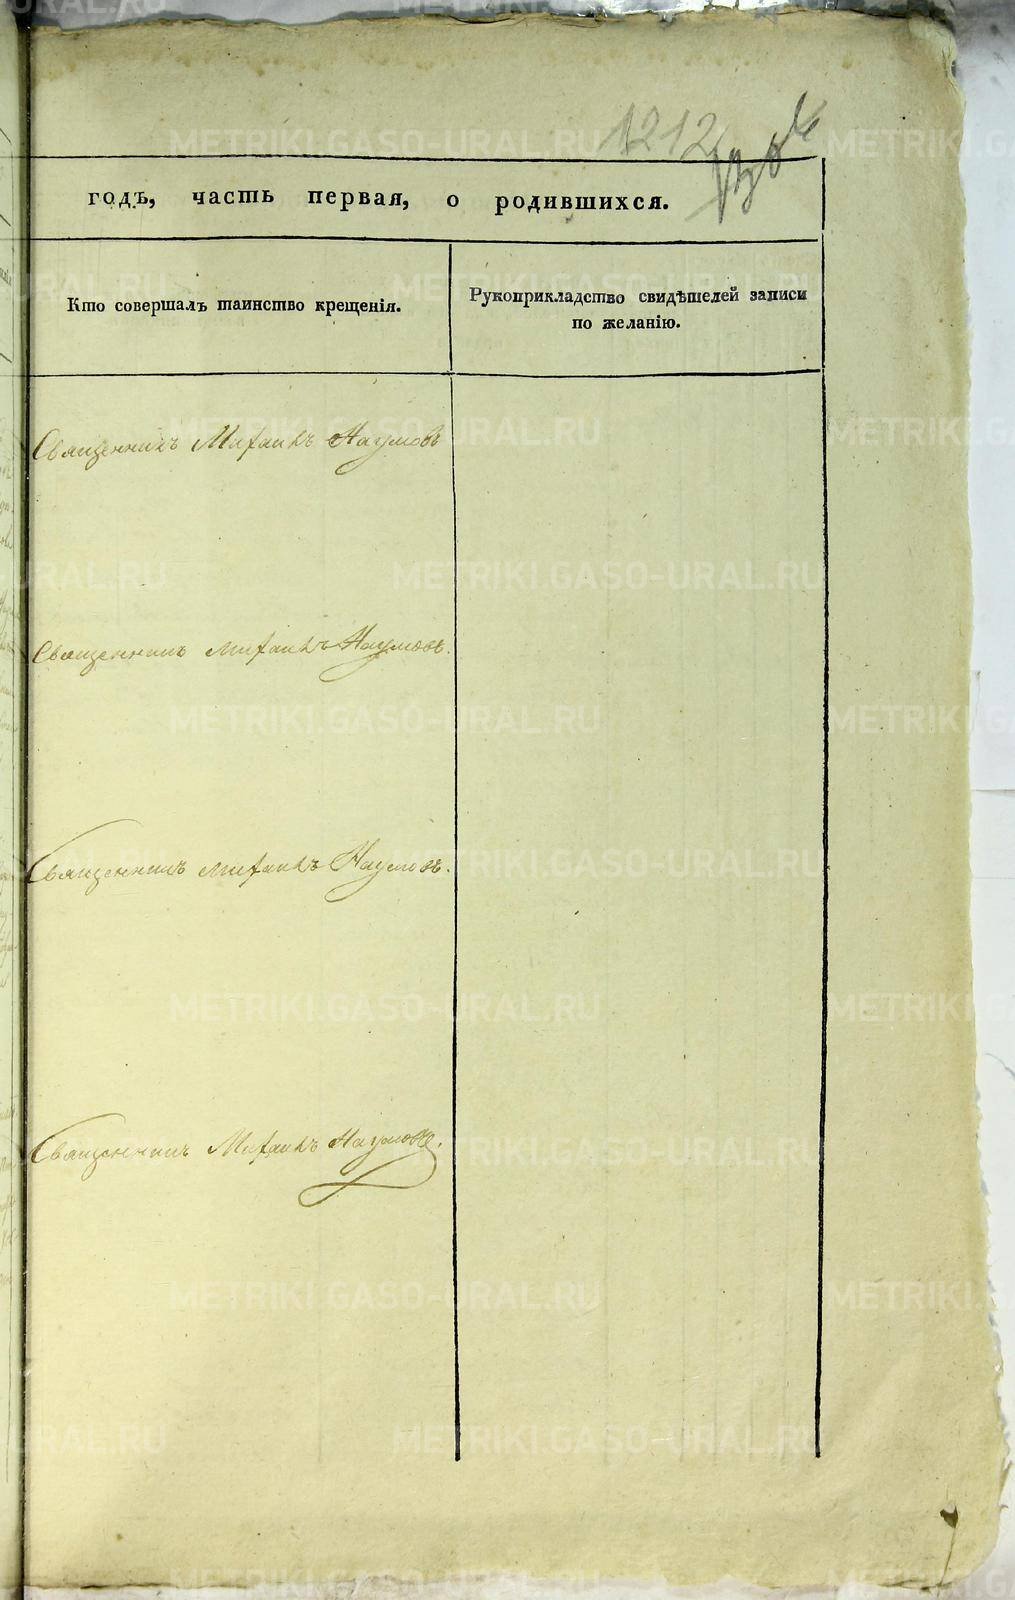 1212
годъ, часть первая, о родившихся.
Кто совершалъ таинство крещенія.
Рукоприкладство свидѣтелей записи
по желанію.
Священникъ Михаилъ Наумовъ
Священникъ Михаилъ Наумовъ.
Священникъ Михаилъ Наумовъ.
Священникъ Михаилъ Наумовъ.
METRIKI.GASO-URAL.RU